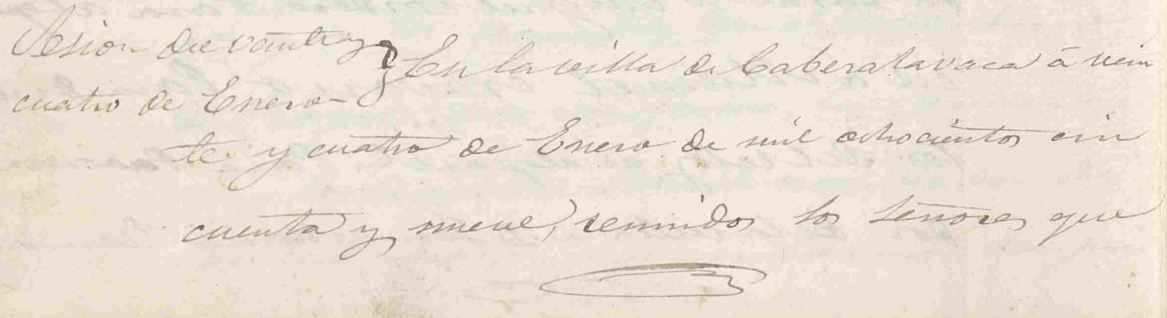 Sesion de veinte y
cuatro de Enero
En la villa de Cabeza la vaca á vein
te y cuatro de Enero de mil ochocientos cin
cuenta y nueve, reunidos los Señores que